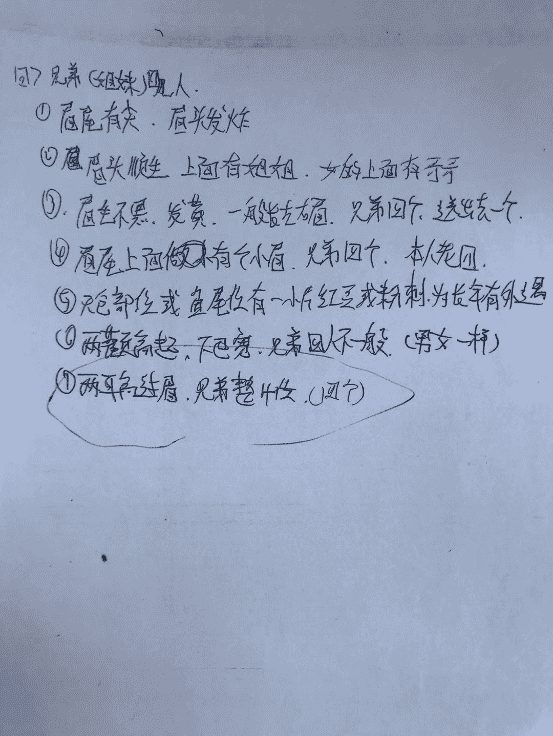 四7 兄弟(姐妹)四人.
① 眉尾有尖. 眉头发炸
② 眉头顺生 上面有姐姐. 女的上面有哥哥
③. 眉毛不黑. 发黄. 一般指左右眉. 兄弟四个. 送出去一个.
④ 眉尾上面有个小眉. 兄弟四个. 本人老四.
⑤ 部位或鱼尾位有一小片红豆或粉刺. 为长年有外遇
⑥ 两颧高起. 下巴宽. 兄弟四人不一般. (男女一样)
⑦ 两耳高过眉. 兄弟整4位. (四个)